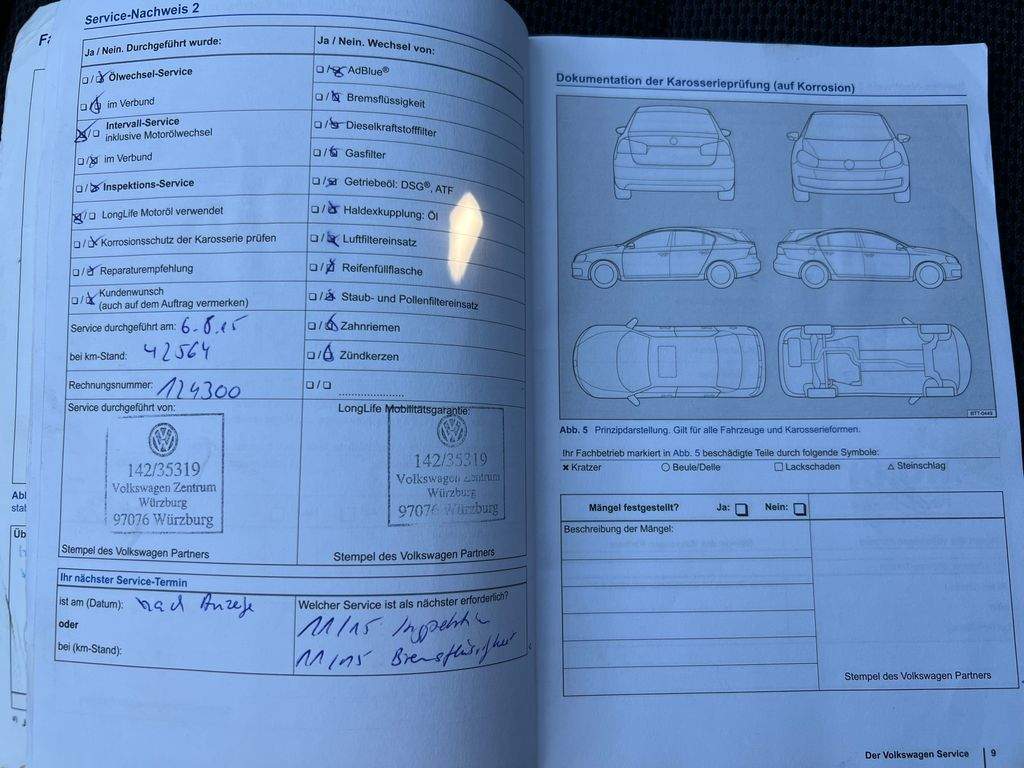 Service-Nachweis 2
Ja / Nein. Durchgeführt wurde:
Ja / Nein. Wechsel von:
Ölwechsel-Service
im Verbund
Intervall-Service
inklusive Motorölwechsel
im Verbund
Inspektions-Service
LongLife Motoröl verwendet
Korrosionsschutz der Karosserie prüfen
Reparaturempfehlung
Kundenwunsch
(auch auf dem Auftrag vermerken)
AdBlue®
Bremsflüssigkeit
Dieselkraftstofffilter
Gasfilter
Getriebeöl: DSG®, ATF
Haldexkupplung: Öl
Luftfiltereinsatz
Reifenfüllflasche
Staub- und Pollenfiltereinsatz
Zahnriemen
Zündkerzen
Service durchgeführt am: 6.8.15
bei km-Stand: 42564
Rechnungsnummer: 124300
Service durchgeführt von:
142/35319
Volkswagen Zentrum
Würzburg
97076 Würzburg
Stempel des Volkswagen Partners
LongLife Mobilitätsgarantie:
142/35319
Volkswagen Zentrum
Würzburg
97076 Würzburg
Stempel des Volkswagen Partners
Ihr nächster Service-Termin
ist am (Datum): nach Anzeige
oder
bei (km-Stand):
Welcher Service ist als nächster erforderlich?
11/15 Inspektion
11/15 Bremsflüssigkeit
Dokumentation der Karosserieprüfung (auf Korrosion)
BTT-0449
Abb. 5 Prinzipdarstellung. Gilt für alle Fahrzeuge und Karosserieformen.
Ihr Fachbetrieb markiert in Abb. 5 beschädigte Teile durch folgende Symbole:
Kratzer
Beule/Delle
Lackschaden
Steinschlag
Mängel festgestellt? Ja: Nein:
Beschreibung der Mängel:
Stempel des Volkswagen Partners
Der Volkswagen Service 9